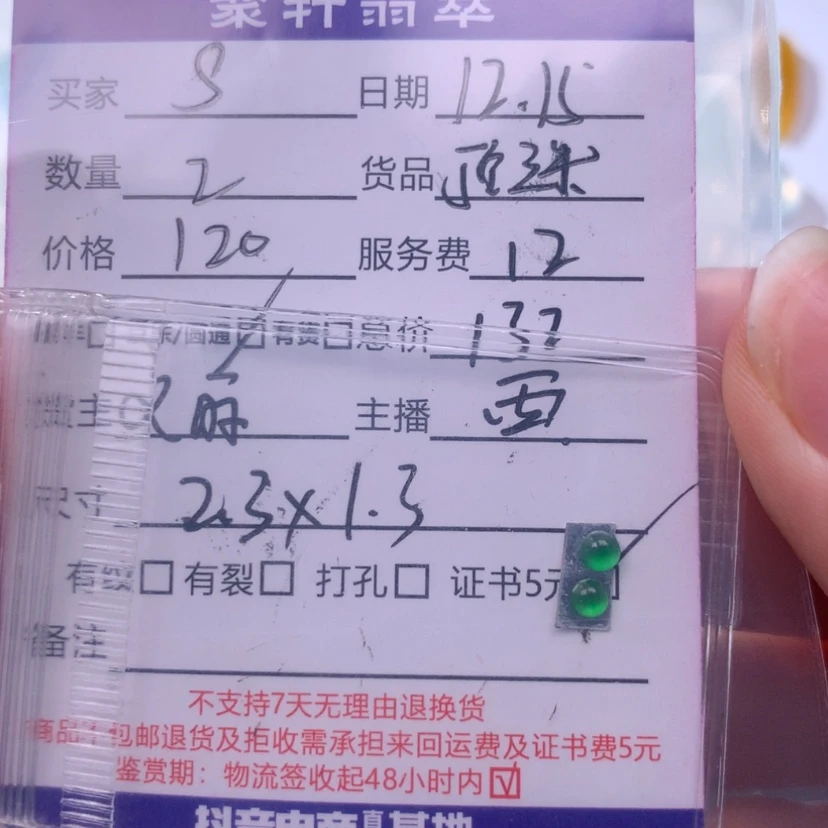 翡翠
买家 S 日期 12.15
数量 2 货品
价格 120 服务费 12
圆通 ☑ 有货 □ 总价 132
主 丽 主播 西
尺寸 2.3×1.3
有纹 □ 有裂 □ 打孔 □ 证书5元
备注
不支持7天无理由退换货
商品 包邮退货及拒收需承担来回运费及证书费5元
鉴赏期：物流签收起48小时内☑
抖音电商 基地